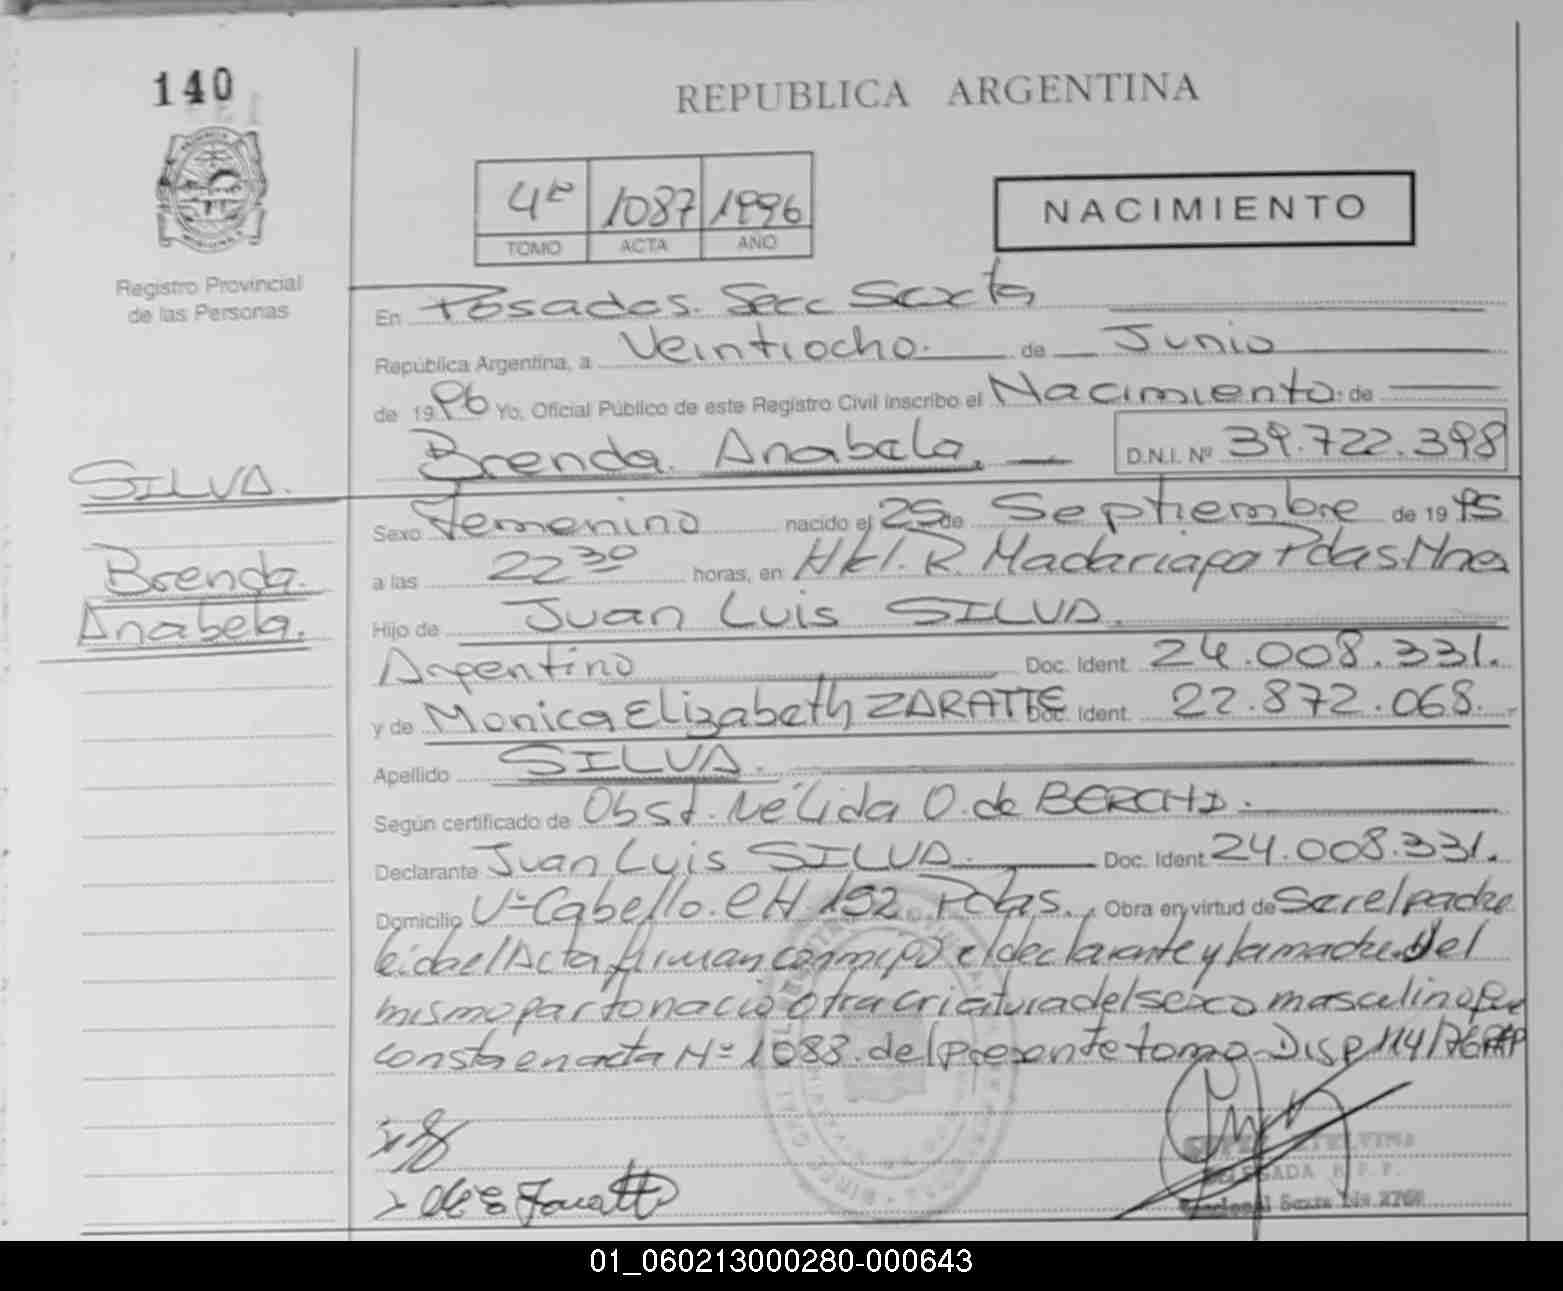 140
REPUBLICA ARGENTINA
4º 1087 1996
TOMO ACTA AÑO
NACIMIENTO
Registro Provincial
de las Personas
En Posadas. Secc Sexta
República Argentina, a Veintiocho. de Junio
de 1996 Yo, Oficial Público de este Registro Civil inscribo el Nacimiento. de
Brenda. Anabela. D.N.I. Nº 39.722.398
SILVA.
Brenda.
Anabela.
Sexo Femenino nacido el 25 de Septiembre de 1995
a las 22 30 horas, en R. Madariaga Pdas Mnes
Hijo de Juan Luis SILVA.
Argentino Doc. Ident. 24.008.331.
y de Monica Elizabeth ZARATTE Doc. Ident. 22.872.068.
Apellido SILVA.
Según certificado de Obst. Nélida O. de BERCHI.
Declarante Juan Luis SILVA. Doc. Ident. 24.008.331.
Domicilio Vº Cabello. CH 192 Pdas. Obra en virtud de Ser el padre
leida el Acta firman conmigo el declarante y la madre. Del
mismo parto nació otra criatura del sexo masculino que
consta en acta Nº 1088. del presente tomo. Disp 114/76 RPP
01_060213000280-000643